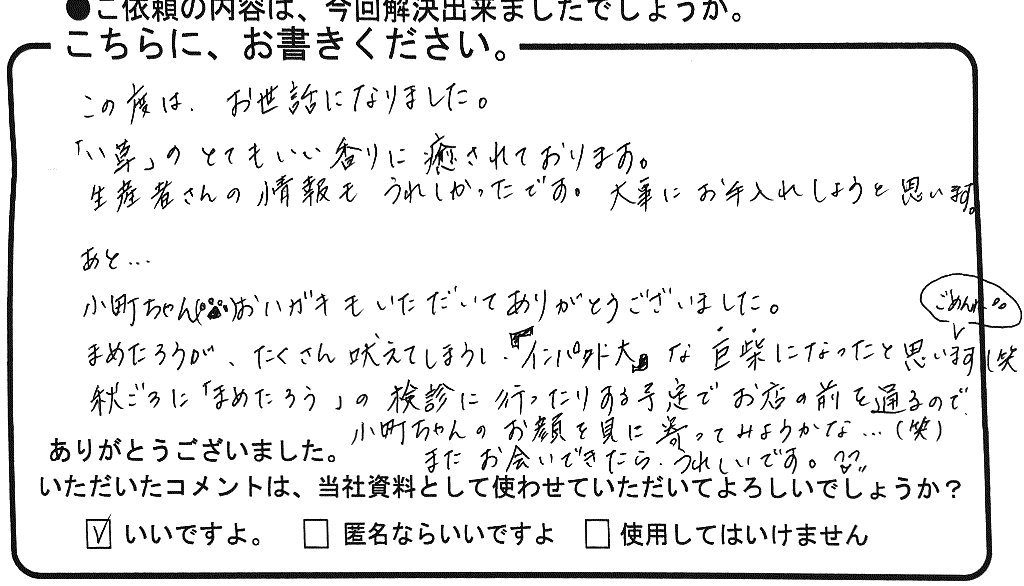 ●ご依頼の内容は、今回解決出来ましたでしょうか。
こちらに、お書きください。
この度は、お世話になりました。
「い草」のとてもいい香りに癒されております。
生産者さんの情報もうれしかったです。大事にお手入れしようと思います。
あと…
小町ちゃん()おハガキもいただいてありがとうございました。
ごめんね
まめたろうが、たくさん吠えてしまうし、『インパクト大』な巨柴になったと思います(笑
秋ごろに「まめたろう」の検診に行ったりする予定でお店の前を通るので、
小町ちゃんのお顔を見に寄ってみようかな…(笑)
またお会いできたら、うれしいです。
ありがとうございました。
いただいたコメントは、当社資料として使わせていただいてよろしいでしょうか?
いいですよ。 匿名ならいいですよ 使用してはいけません